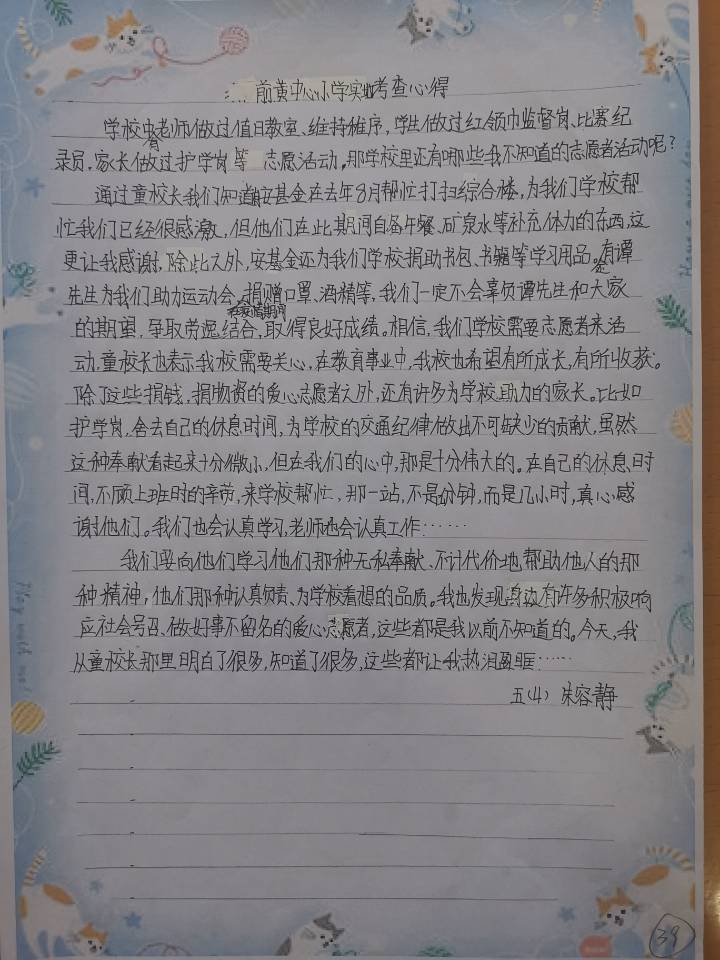 前黄中心小学实地考查心得
学校里老师做过值日教室、维持秩序,学生做过红领巾监督岗、比赛纪
录员,家长做过护学岗等志愿活动。那学校里还有哪些我不知道的志愿者活动呢?
通过童校长我们知道安基金在去年8月帮忙打扫综合楼,为我们学校帮
忙我们已经很感激,但他们在此期间自备午餐、矿泉水等补充体力的东西,这
更让我感谢,除此之外,安基金还为我们学校捐助书包、书籍等学习用品。有谭
先生为我们助力运动会,捐赠口罩、酒精等,我们一定不会辜负谭先生和大家
在疫情期间
的期望,争取劳逸结合,取得良好成绩。相信,我们学校需要志愿者来活
动,童校长也表示我校需要关心,在教育事业中,我校也希望有所成长,有所收获。
除了这些捐钱,捐物资的爱心志愿者之外,还有许多为学校助力的家长。比如
护学岗,舍去自己的休息时间,为学校的交通纪律做出不可缺少的贡献,虽然
这种奉献看起来十分微小,但在我们的心中,那是十分伟大的。在自己的休息时
间,不顾上班时的辛劳,来学校帮忙,那一站,不是分钟,而是几小时,真心感
谢他们。我们也会认真学习,老师也会认真工作……
我们要向他们学习他们那种无私奉献、不计代价地帮助他人的那
种精神,他们那种认真负责、为学校着想的品质。我也发现身边有许多积极响
应社会号召、做好事不留名的爱心志愿者,这些都是我以前不知道的。今天,我
从童校长那里明白了很多,知道了很多,这些都让我热泪盈眶……
五(4) 朱容静
39